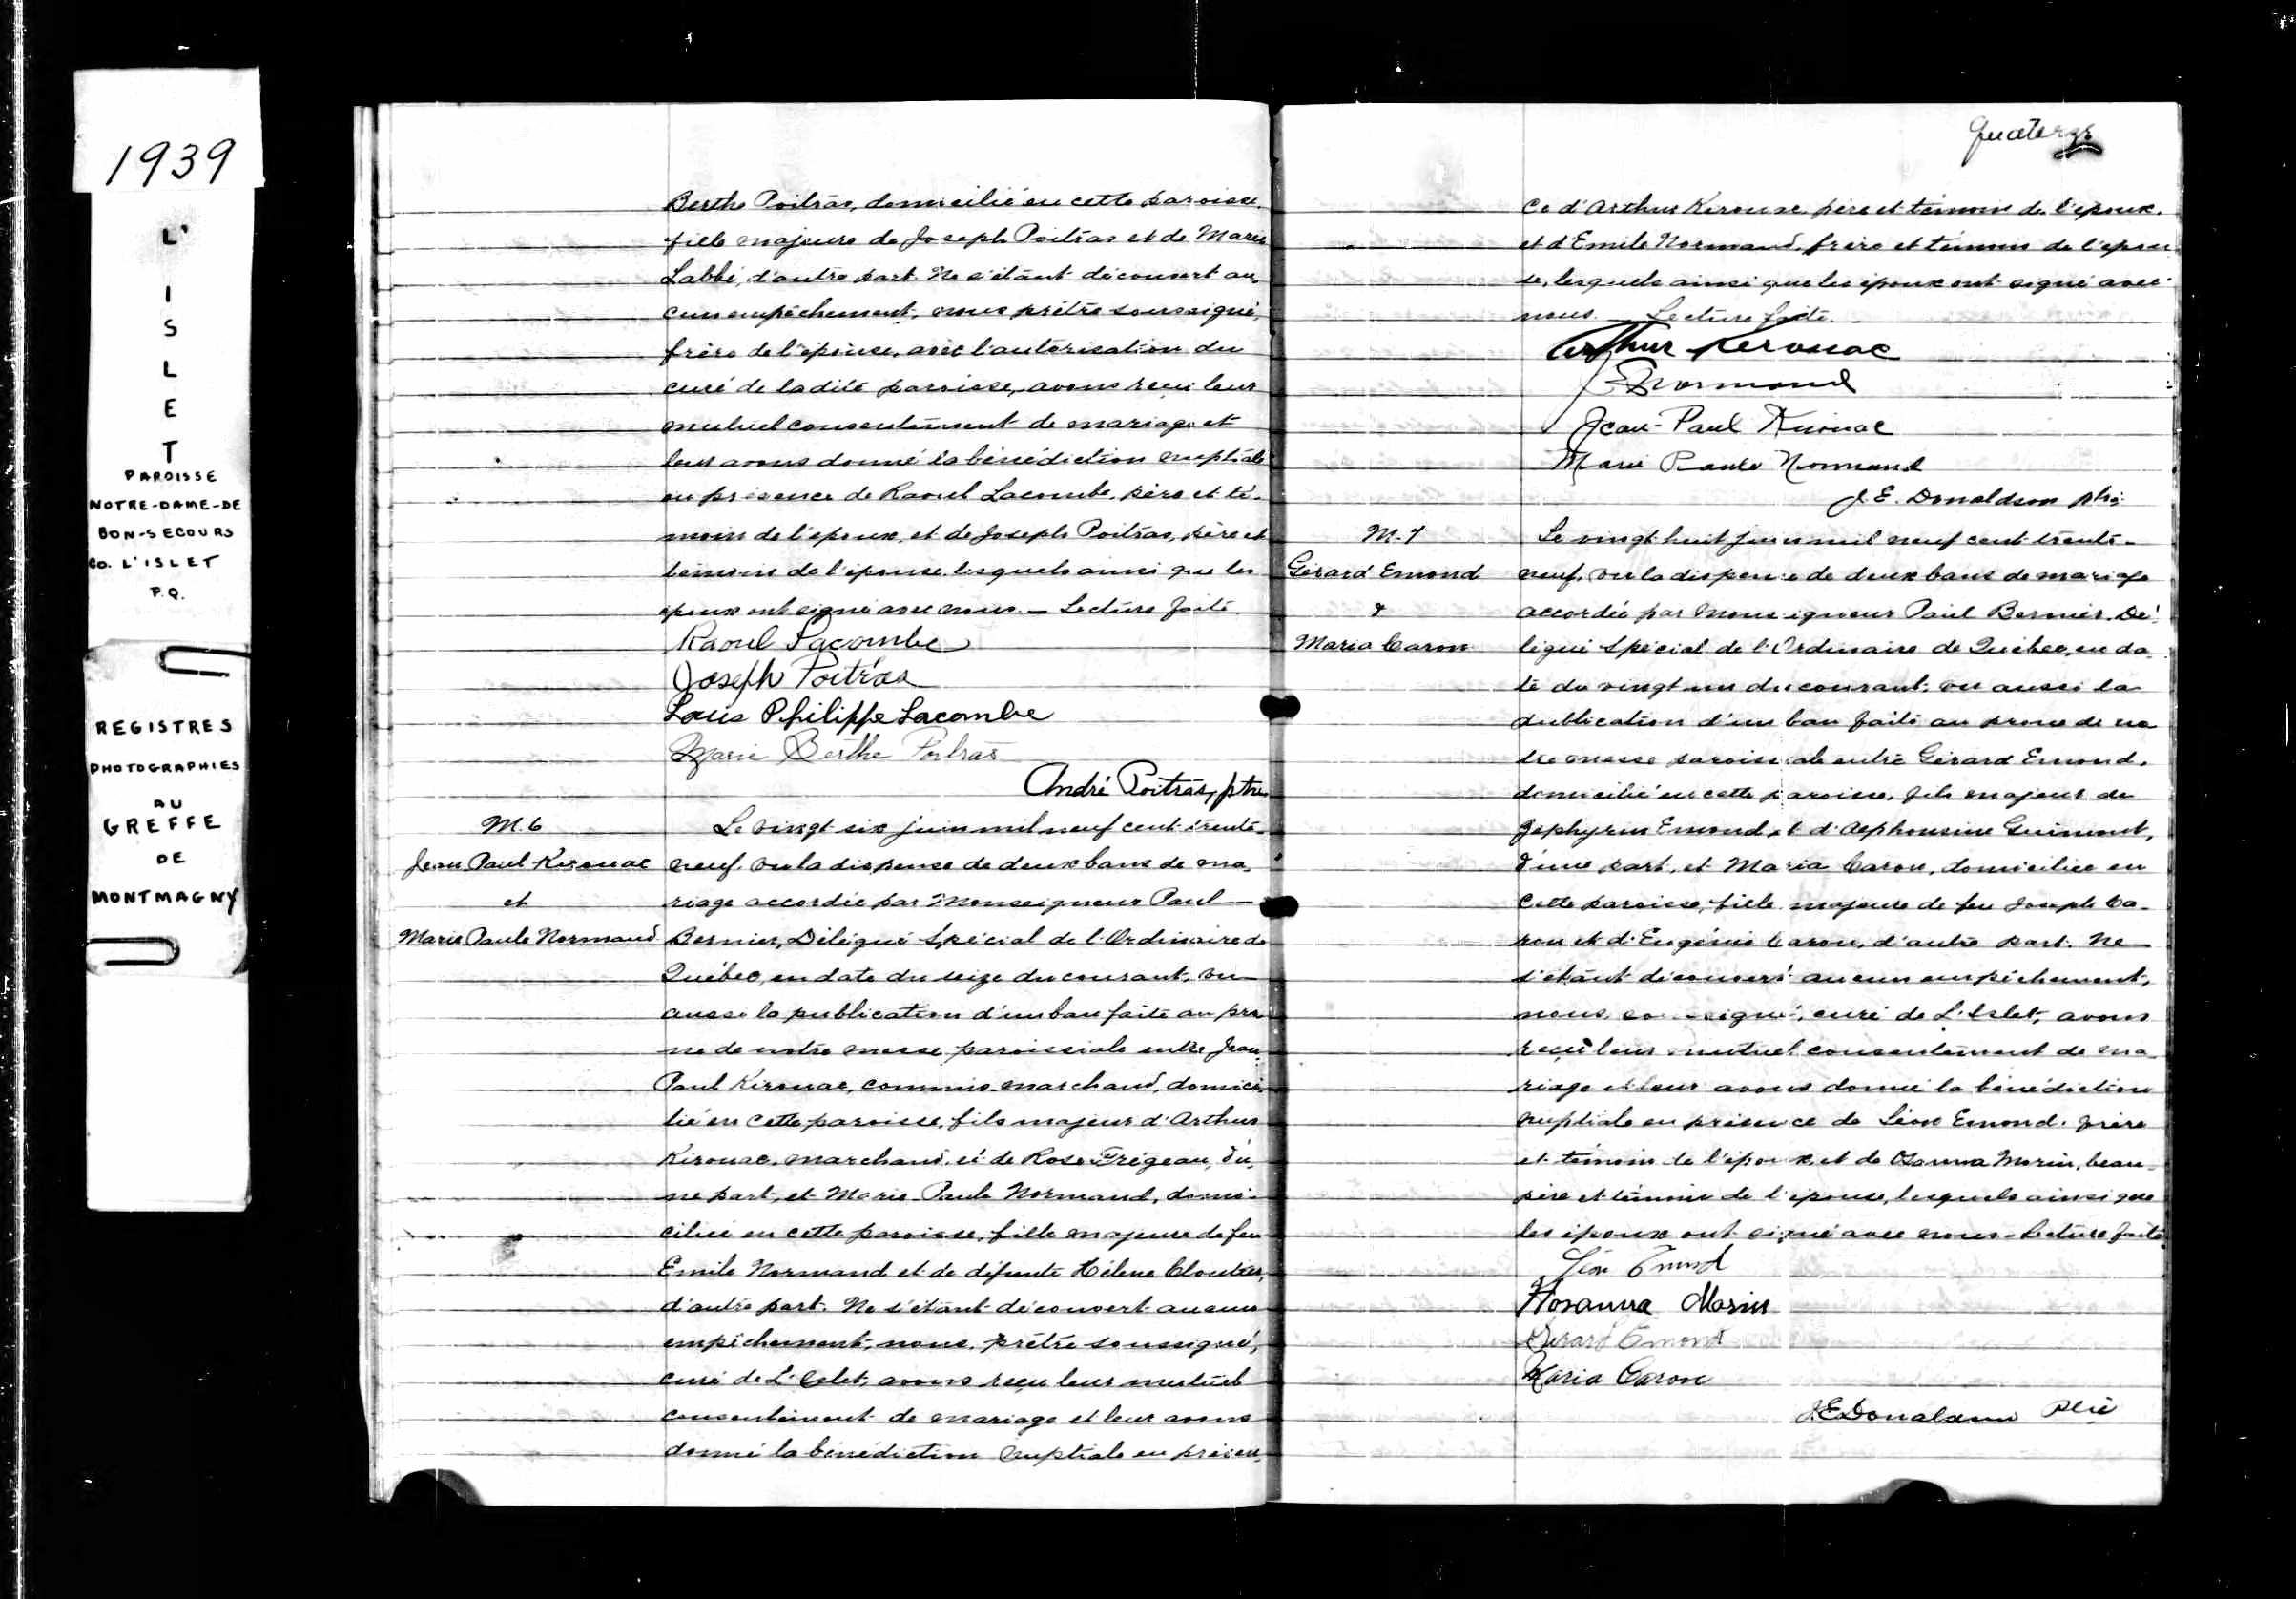 1939
L'
I
S
L
E
T
PAROISSE
NOTRE-DAME-DE
BON-SECOURS
CO. L'ISLET
P.Q.
REGISTRES
PHOTOGRAPHIES
AU
GREFFE
DE
MONTMAGNY
Berthe Poitras, domiciliée en cette paroisse,
fille majeure de Joseph Poitras et de Marie
Labbé, d'autre part. Ne s'étant découvert au-
cun empêchement, nous prêtre soussigné,
frère de l'épouse, avec l'autorisation du
curé de ladite paroisse, avons reçu leur
mutuel consentement de mariage et
leur avons donné la bénédiction nuptiale
en présence de Raoul Lacombe, père et té-
moin de l'époux, et de Joseph Poitras, père et
témoin de l'épouse, lesquels ainsi que les
époux ont signé avec nous. - Lecture faite.
Raoul Lacombe
Joseph Poitras
Louis Philippe Lacombe
Marie Berthe Poitras
André Poitras, ptre
M. 6
Jean Paul Kirouac
et
Marie Paule Normand
Le vingt six juin mil neuf cent trente-
neuf, vu la dispense de deux bans de ma-
riage accordée par Monseigneur Paul
Bernier, Délégué Spécial de l'Ordinaire de
Québec, en date du seize du courant, vu
aussi la publication d'un ban faite au prô-
ne de notre messe paroissiale entre Jean
Paul Kirouac, commis-marchand, domici-
lié en cette paroisse, fils majeur d'Arthur
Kirouac, marchand, et de Rose Frégeau, d'u-
ne part, et Marie Paule Normand, domi-
ciliée en cette paroisse, fille majeure de feu
Emile Normand et de défunte Hélène Cloutier,
d'autre part. Ne s'étant découvert aucun
empêchement, nous, prêtre soussigné,
curé de L'Islet, avons reçu leur mutuel
consentement de mariage et leur avons
donné la bénédiction nuptiale en présen-
quatorze
ce d'Arthur Kirouac, père et témoin de l'époux,
et d'Emile Normand, frère et témoin de l'épou-
se, lesquels ainsi que les époux ont signé avec
nous. - Lecture faite.
Arthur Kerouac
E Normand
Jean-Paul Kirouac
Marie Paule Normand
J. E. Donaldson ptre
M. 7
Gérard Emond
&
Maria Caron
Le vingt huit juin mil neuf cent trente-
neuf, vu la dispense de deux bans de mariage
accordée par Monseigneur Paul Bernier, Dé-
légué Spécial de l'Ordinaire de Québec, en da-
te du vingt un du courant, vu aussi la
publication d'un ban faite au prone de no-
tre messe paroissiale entre Gérard Emond,
domicilié en cette paroisse, fils majeur de
Zephyrin Emond et d'Alphonsine Guimont,
d'une part, et Maria Caron, domiciliée en
cette paroisse, fille majeure de feu Joseph Ca-
ron et d'Eugénie Caron, d'autre part. Ne
s'étant découvert aucun empêchement,
nous, soussigné, curé de L'Islet, avons
reçu leur mutuel consentement de ma-
riage et leur avons donné la bénédiction
nuptiale en présence de Léon Emond, frère
et témoin de l'époux, et de Osanna Morin, beau-
père et témoin de l'épouse, lesquels ainsi que
les époux ont signé avec nous. - Lecture faite.
Léon Emond
Hosanna Morin
Gérard Emond
Maria Caron
J.E. Donaldson ptre